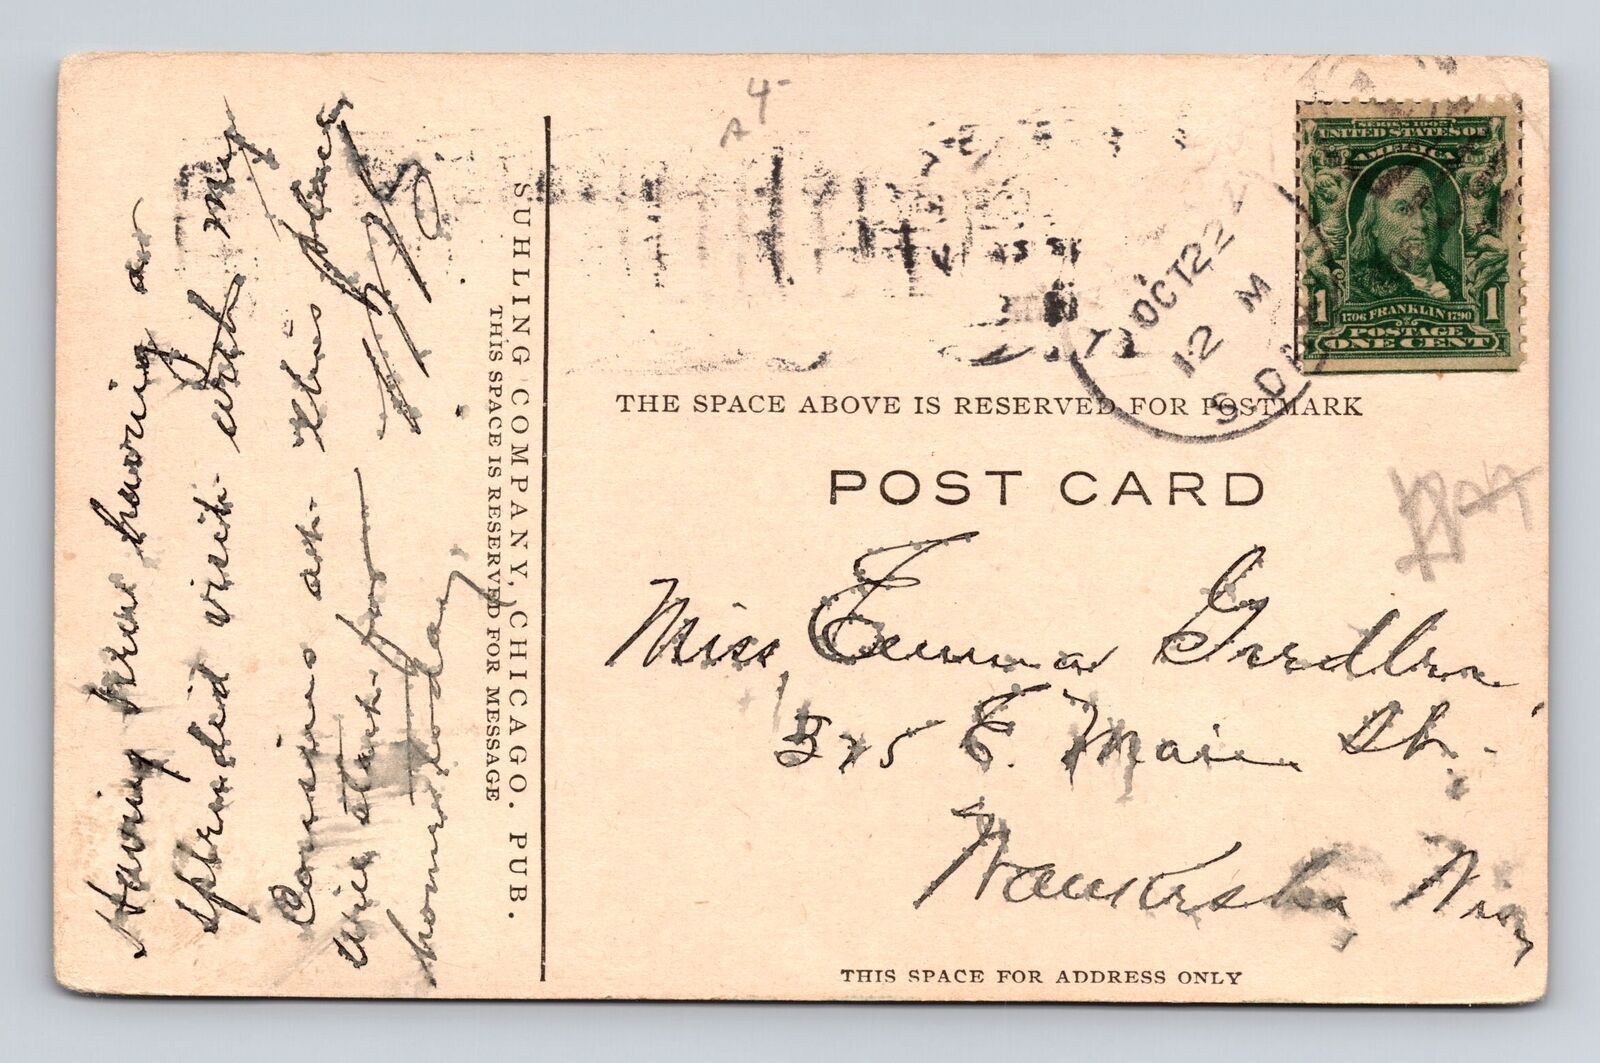 Having been having a
splendid visit with my
Cousins at this place
Will start for
home today.
SUHLING COMPANY, CHICAGO. PUB.
THIS SPACE IS RESERVED FOR MESSAGE
4-
OCT 22
12 M
S.D.
SERIES 1902
UNITED STATES OF
AMERICA
1 1
1706 FRANKLIN 1790
POSTAGE
ONE CENT
THE SPACE ABOVE IS RESERVED FOR POSTMARK
POST CARD
Miss Emma
E. Main St.
Waukesha Wis
THIS SPACE FOR ADDRESS ONLY